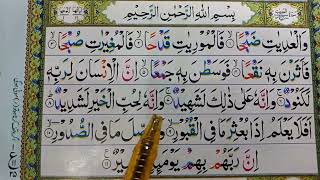 بِسْمِ اللّٰهِ الرَّحْمٰنِ الرَّحِيْمِ
وَالْعٰدِيٰتِ ضَبْحًا ۙ فَالْمُوْرِيٰتِ قَدْحًا ۙ فَالْمُغِيْرٰتِ صُبْحًا ۙ
فَاَثَرْنَ بِهٖ نَقْعًا ۙ فَوَسَطْنَ بِهٖ جَمْعًا ۙ اِنَّ الْاِنْسَانَ لِرَبِّهٖ
لَكَنُوْدٌ ۚ وَاِنَّهٗ عَلٰى ذٰلِكَ لَشَهِيْدٌ ۚ وَاِنَّهٗ لِحُبِّ الْخَيْرِ لَشَدِيْدٌ ؕ
اَفَلَا يَعْلَمُ اِذَا بُعْثِرَ مَا فِى الْقُبُوْرِ ۙ وَحُصِّلَ مَا فِى الصُّدُوْرِ ۙ
اِنَّ رَبَّهُمْ بِهِمْ يَوْمَئِذٍ